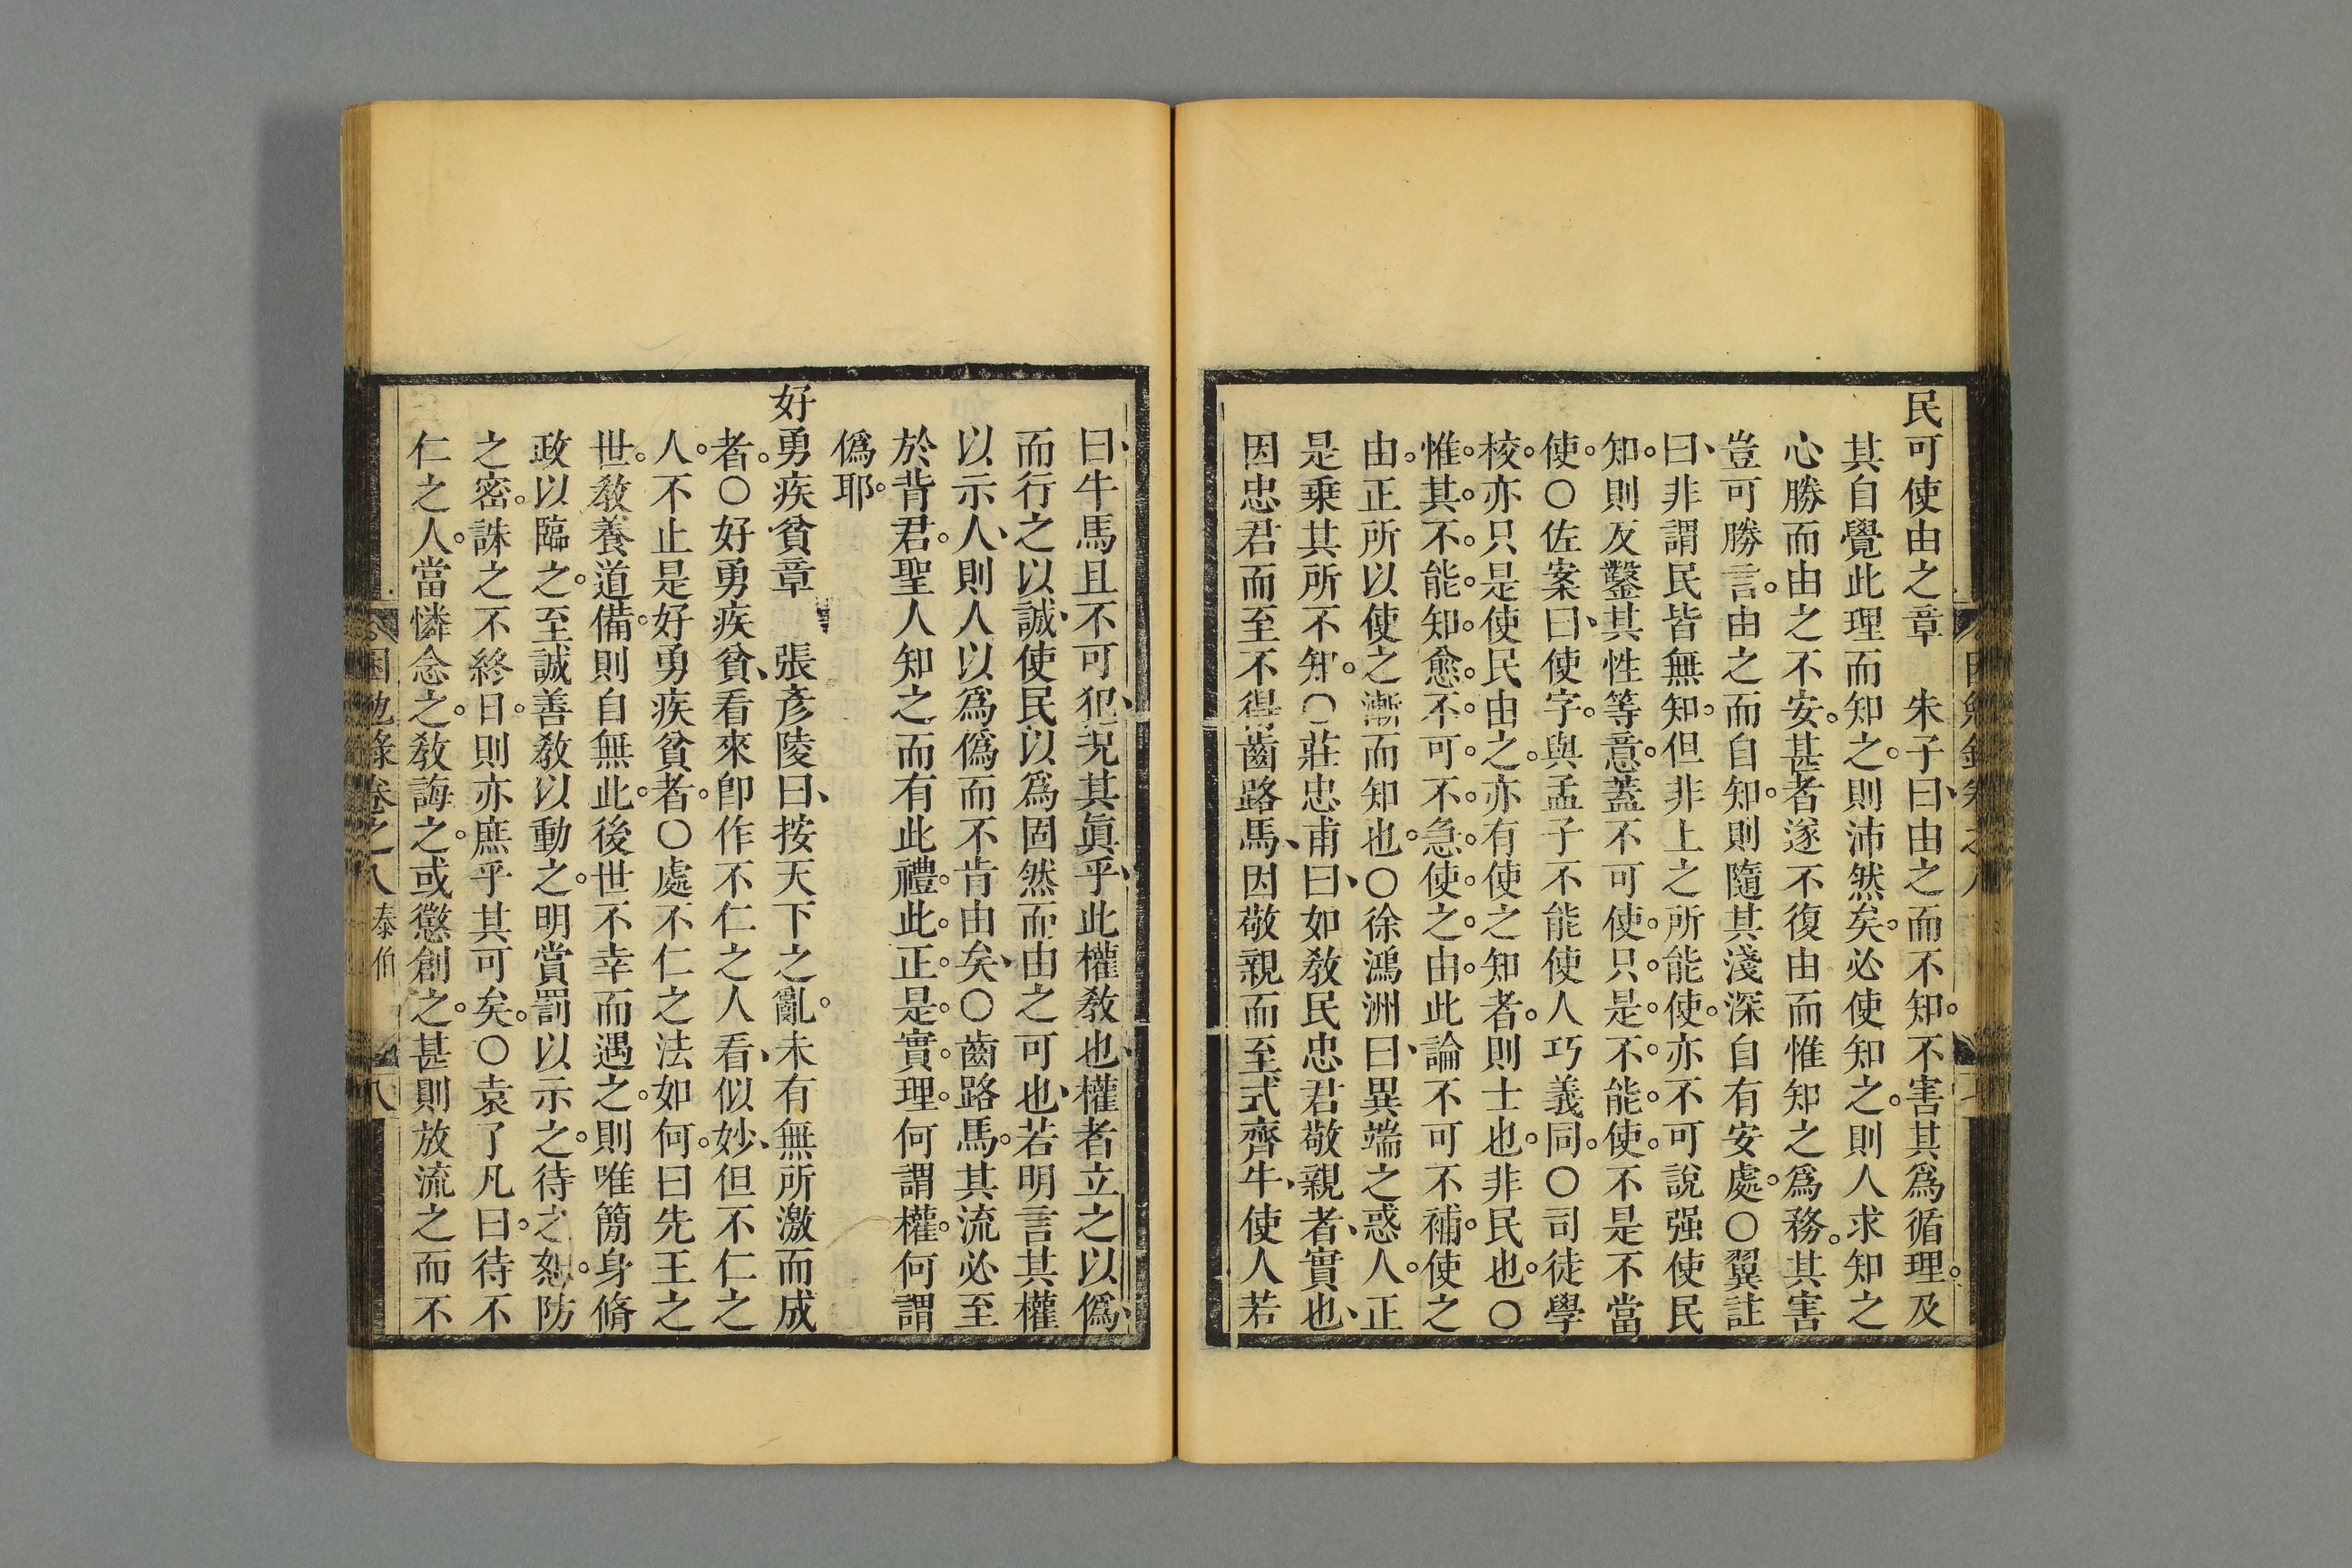 民可使由之章　朱子曰、由之而不知。不害其為循理。及
其自覺此理而知之。則沛然矣。必使知之。則人求知之
心勝而由之不安。甚者遂不復由而惟知之為務。其害
豈可勝言。由之而自知。則隨其淺深自有安處。○翼註
曰、非謂民皆無知。但非上之所能使。亦不可說强使民
知。則反鑿其性等意。蓋不可使。只是。不。能。使。不是不當
使。○佐案曰、使字。與孟子不能使人巧義同。○司徒學
校。亦只是使民由之。亦有使之知者。則士也。非民也。○
惟。其。不。能。知。愈。不。可。不。急。使。之。由。此論不可不補。使之
由。正所以使之漸而知也。○徐鴻洲曰、異端之惑人。正
是乗其所不知。○莊忠甫曰、如教民忠君敬親者、實也、
因忠君而至不得齒路馬、因敬親而至式齊牛、使人若
曰、牛馬且不可犯、况其眞乎、此權教也、權者立之以僞、
而行之以誠、使民以為固然而由之可也、若明言其權
以示人、則人以為僞而不肯由矣、○齒路馬。其流必至
於背君。聖人知之而有此禮。此。正。是。實。理。何謂權。何謂
僞耶。
好勇疾貧章　張彥陵曰、按天下之亂。未有無所激而成
者。○好勇疾貧、看來卽作不仁之人看、似妙、但不仁之
人。不止是好勇疾貧者。○處不仁之法如何。曰先王之
世。教養道備。則自無此。後世不幸而遇之。則唯簡身脩
政以臨之。至誠善教以動之。明賞罰以示之。待之恕。防
之密。誅之不終日。則亦庶乎其可矣。○袁了凡曰。待不
仁之人。當憐念之。教誨之。或懲創之。甚則放流之而不
困勉錄卷之八　泰伯　八